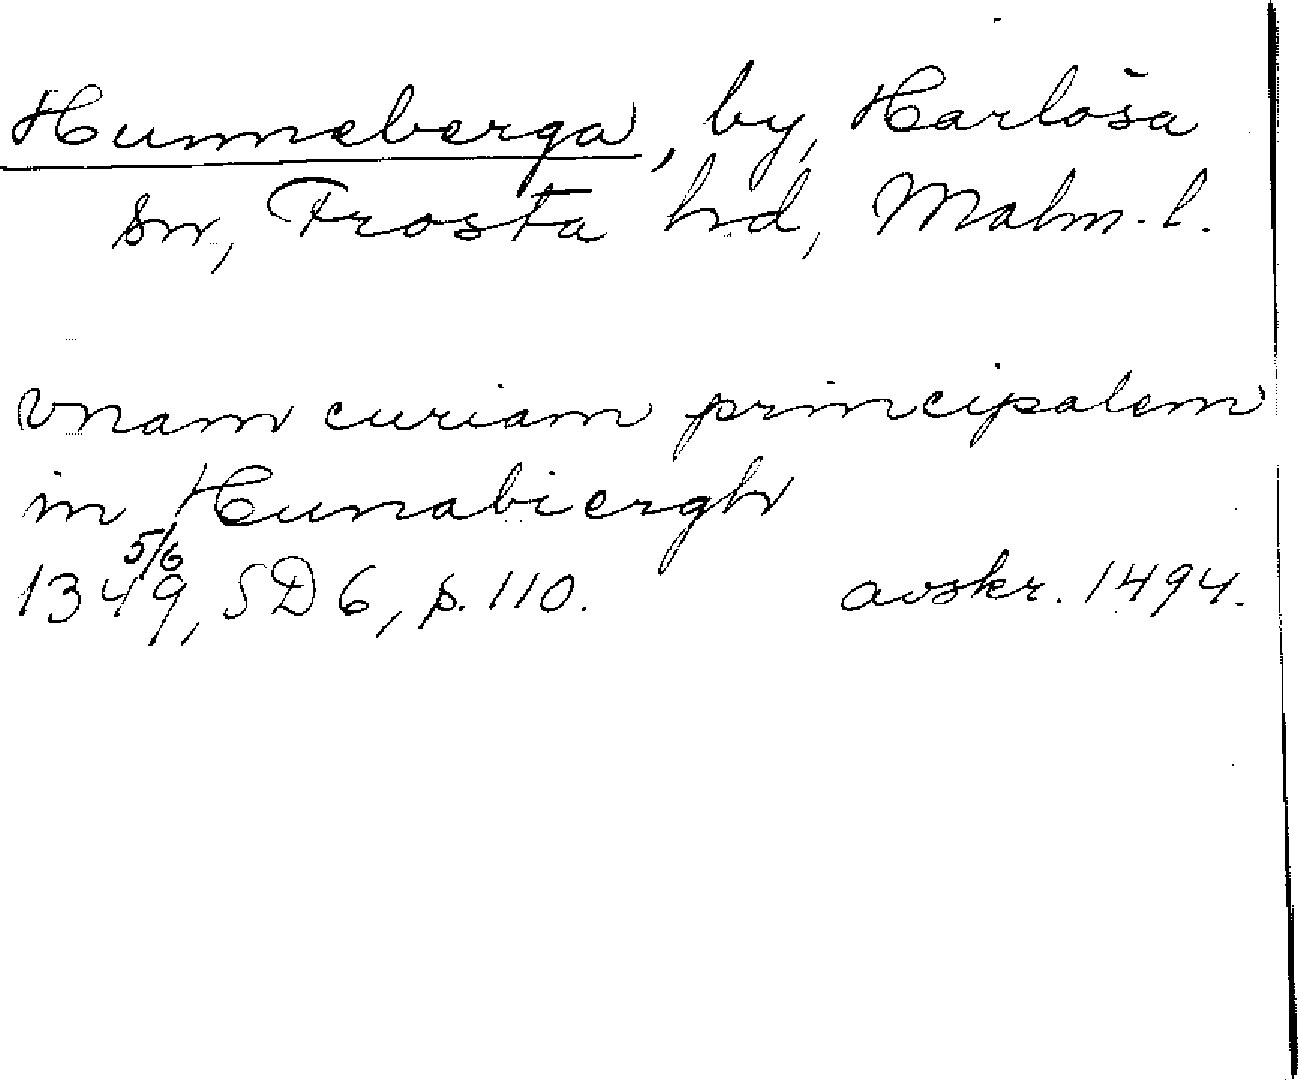 Hunneberga, by, Harlösa
sn, Frosta hd, Malm. l.
vnam curiam principalem
in Hunabiergh
1349 5/6, SD 6, s. 110. avskr. 1494.